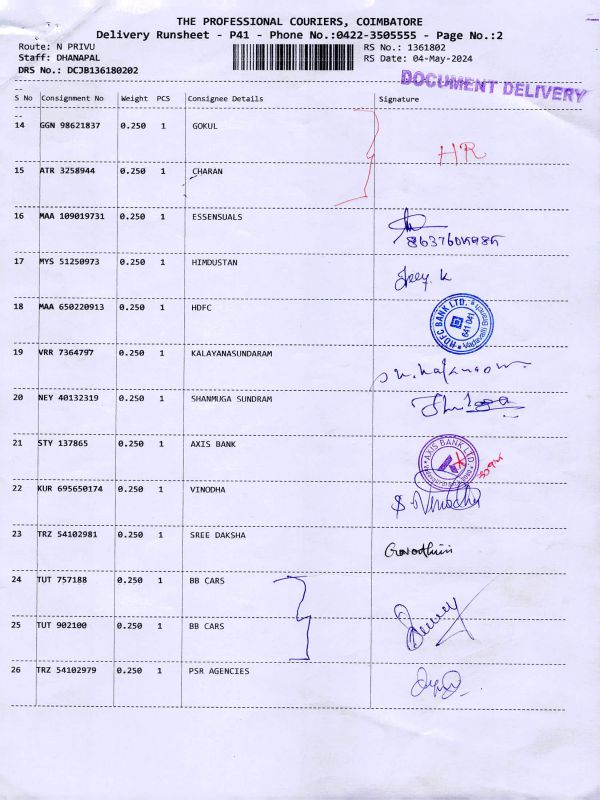 THE PROFESSIONAL COURIERS, COIMBATORE
Delivery Runsheet - P41 - Phone No.:0422-3505555 - Page No.:2
Route: N PRIVU RS No.: 1361802
Staff: DHANAPAL RS Date: 04-May-2024
DRS No.: DCJB136180202
DOCUMENT DELIVERY
S No Consignment No Weight PCS Consignee Details Signature
14 GGN 98621837 0.250 1 GOKUL
HR
15 ATR 3258944 0.250 1 CHARAN
16 MAA 109019731 0.250 1 ESSENSUALS
17 MYS 51250973 0.250 1 HIMDUSTAN
18 MAA 650220913 0.250 1 HDFC
HDFC BANK LTD. 641 041 Vadavalli Branch
19 VRR 7364797 0.250 1 KALAYANASUNDARAM
20 NEY 40132319 0.250 1 SHANMUGA SUNDRAM
21 STY 137865 0.250 1 AXIS BANK
AXIS BANK LTD.
22 KUR 695650174 0.250 1 VINODHA
S. Vinodha
23 TRZ 54102981 0.250 1 SREE DAKSHA
24 TUT 757188 0.250 1 BB CARS
25 TUT 902100 0.250 1 BB CARS
26 TRZ 54102979 0.250 1 PSR AGENCIES